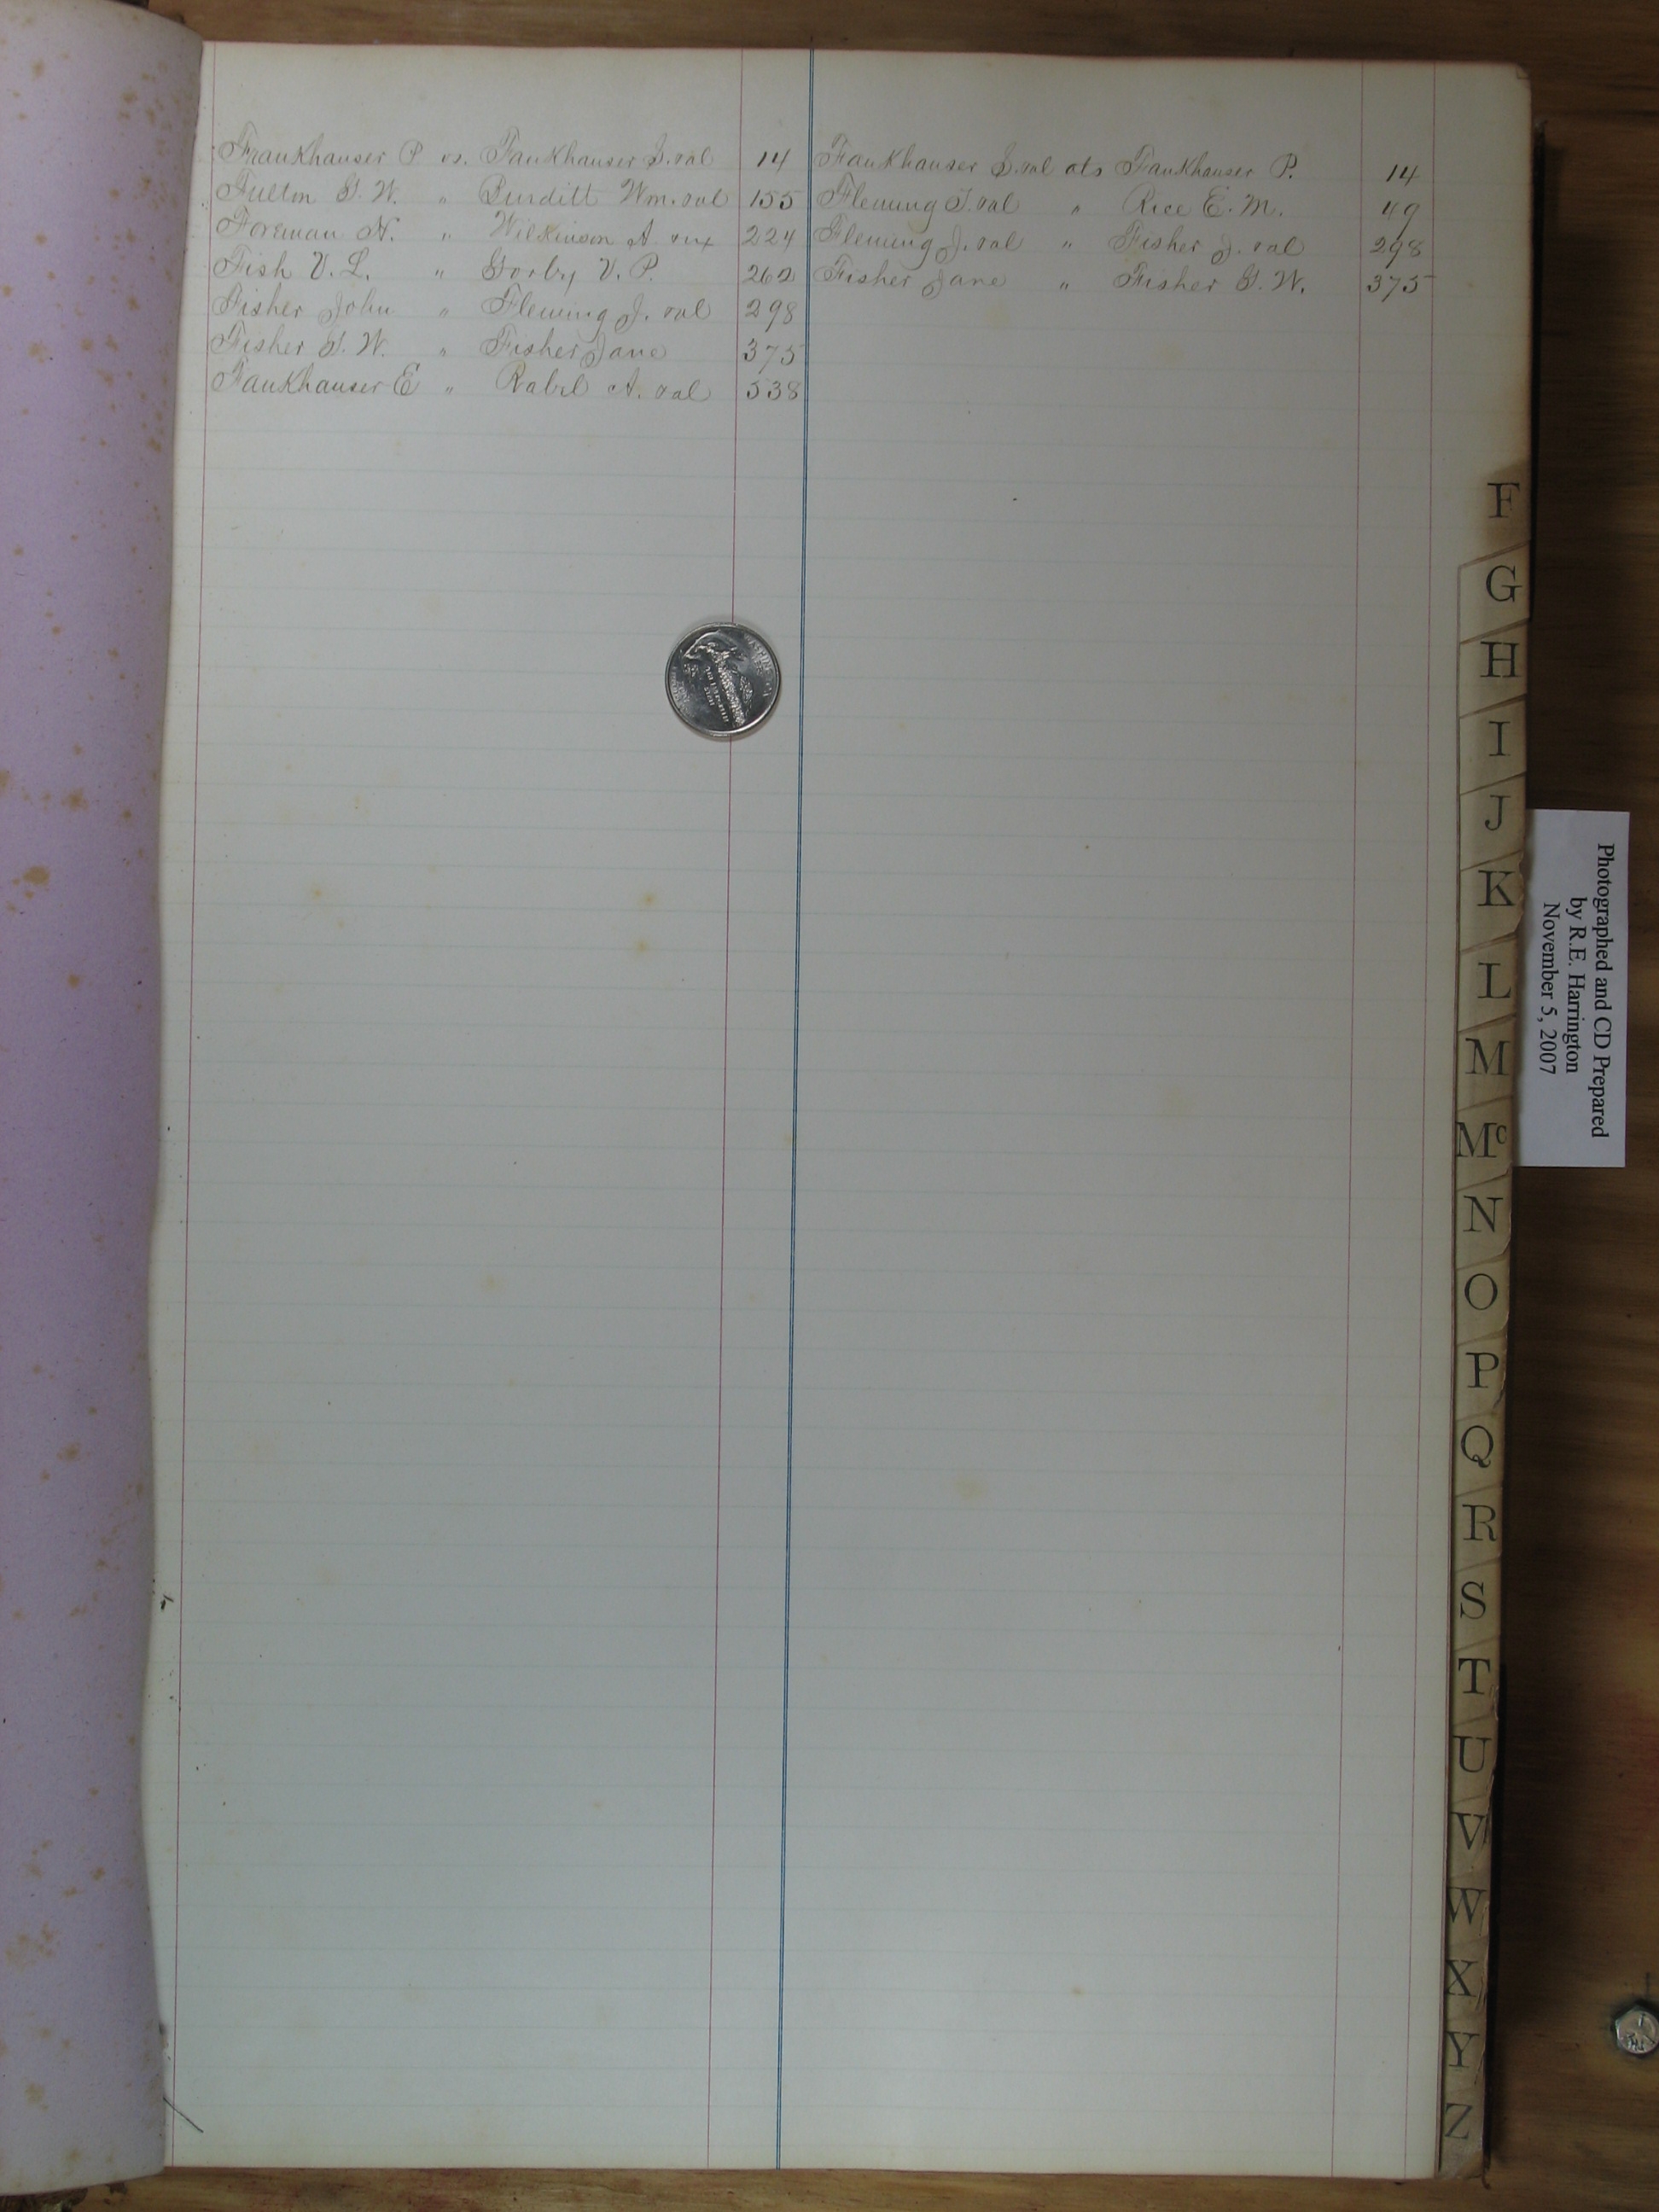 Frankhauser P vs. Fankhauser S. et al 14
Fulton G. W. " Burditt Wm. et al 155
Foreman N. " Wilkinson A. et ux 224
Fish V. L. " Gorby V. P. 262
Fisher John " Fleming J. et al 298
Fisher G. W. " Fisher Jane 375
Fankhauser E " Rabel A. et al 538
Fankhauser S. et al ats Fankhauser P. 14
Fleming T. et al " Rice E. M. 49
Fleming J. et al " Fisher J. et al 298
Fisher Jane " Fisher G. W. 375
F
G
H
I
J
K
L
M
Mc
N
O
P
Q
R
S
T
U
V
W
X
Y
Z
Photographed and CD Prepared
by R.E. Harrington
November 5, 2007